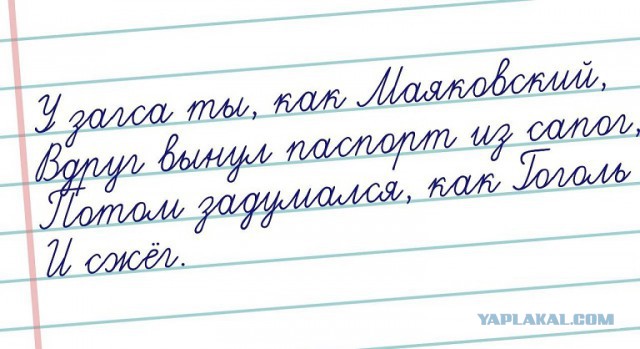 У загса ты, как Маяковский,
Вдруг вынул паспорт из сапог,
Потом задумался, как Гоголь
И сжёг.
YAPLAKAL.COM